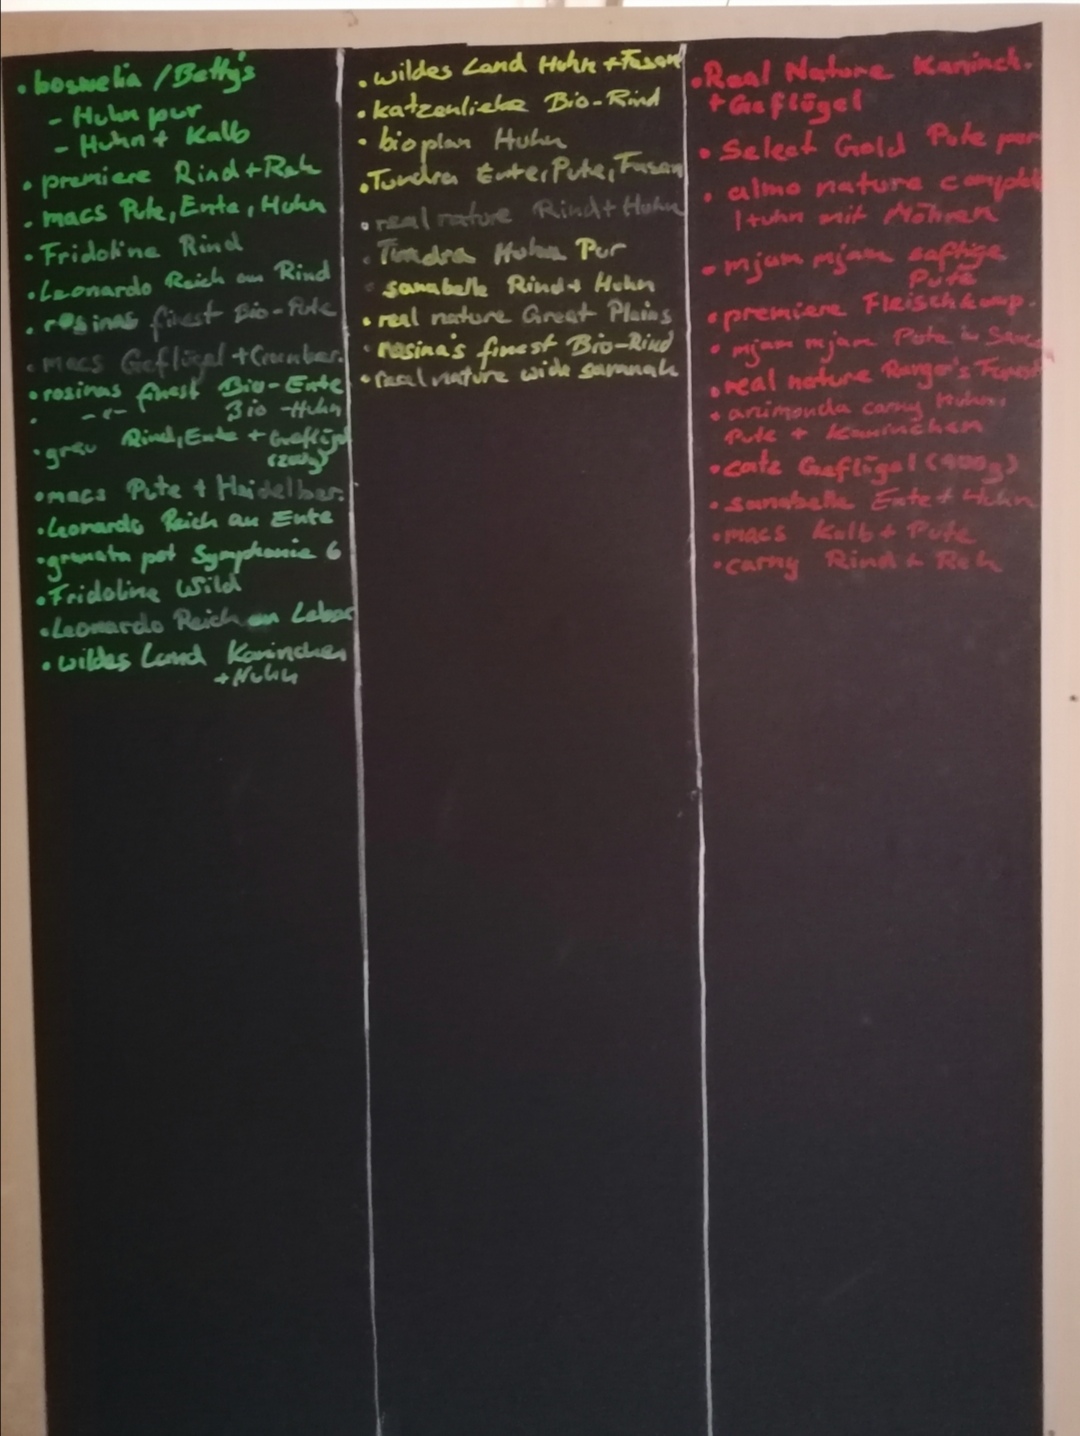 • boswelia / Betty's
- Huhn pur
- Huhn + Kalb
• premiere Rind + Reh
• macs Pute, Ente, Huhn
• Fridoline Rind
• Leonardo Reich an Rind
• rosinas finest Bio-Pute
• macs Geflügel + Cranber.
• rosinas finest Bio-Ente
• -"- Bio-Huhn
• grau Rind, Ente + Geflügel
(200g)
• macs Pute + Heidelber.
• Leonardo Reich an Ente
• granata pet Symphonie 6
• Fridoline Wild
• Leonardo Reich an Leber
• wildes Land Kaninchen
+ Huhn
• wildes Land Huhn + Fasan
• katzenliebe Bio-Rind
• bioplan Huhn
• Tundra Ente, Pute, Fasan
• real nature Rind + Huhn
• Tundra Huhn Pur
• sanabelle Rind + Huhn
• real nature Great Plains
• rosina's finest Bio-Rind
• real nature wide savannah
• Real Nature Kaninch.
+ Geflügel
• Select Gold Pute pur
• almo nature complete
Huhn mit Möhren
• mjam mjam saftige
Pute
• premiere Fleischkomp.
• mjam mjam Pute in Sauce
• real nature Ranger's Forest
• animonda carny Huhn,
Pute + Kaninchen
• catz Geflügel (400g)
• sanabelle Ente + Huhn
• macs Kalb + Pute
• carny Rind + Reh